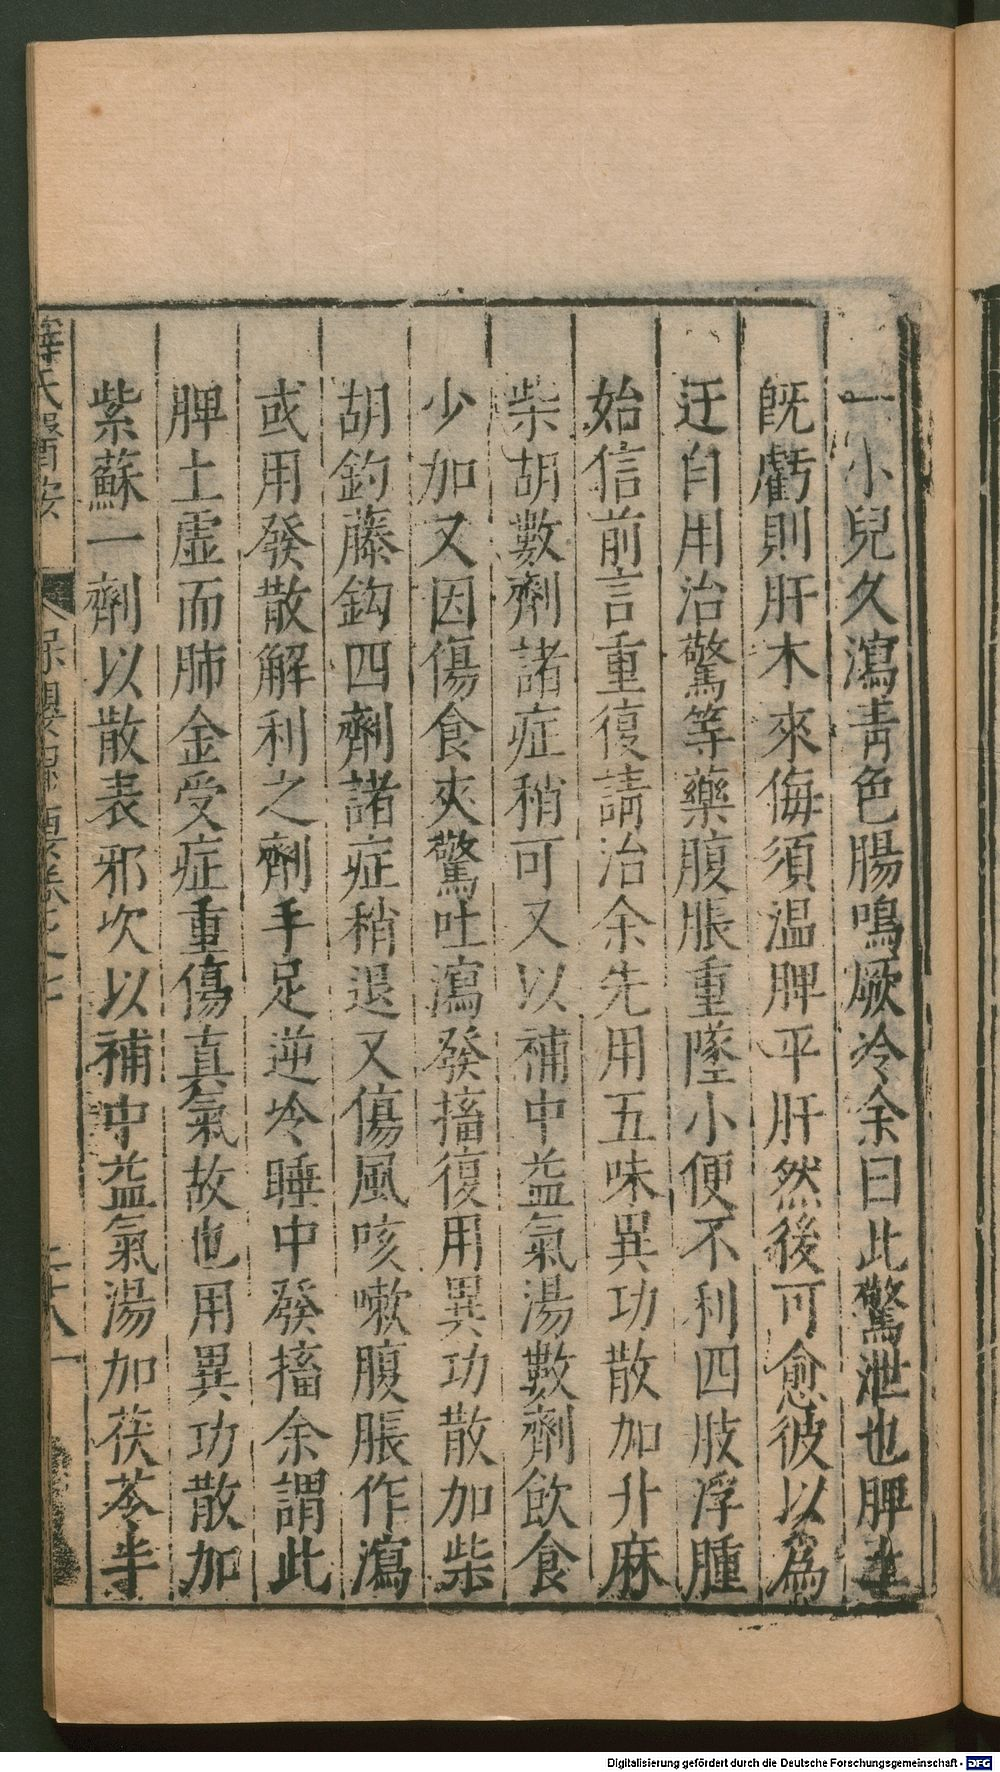 一小兒久瀉青色腸鳴厥冷余曰此驚泄也脾土
旣虧則肝木來侮須温脾平肝然後可愈彼以爲
迂自用治驚等藥腹脹重墜小便不利四肢浮腫
始信前言重復請治余先用五味異功散加升麻
柴胡數劑諸症稍可又以補中益氣湯數劑飲食
少加又因傷食夾驚吐瀉發搐復用異功散加柴
胡鈞藤鈎四劑諸症稍退又傷風咳嗽腹脹作瀉
或用發散解利之劑手足逆冷睡中發搐余謂此
脾土虛而肺金受症重傷真氣故也用異功散加
紫蘇一劑以散表邪次以補中益氣湯加茯苓半
薛氏醫按
保嬰撮要卷之七
二十八
Digitalisierung gefördert durch die Deutsche Forschungsgemeinschaft - DFG